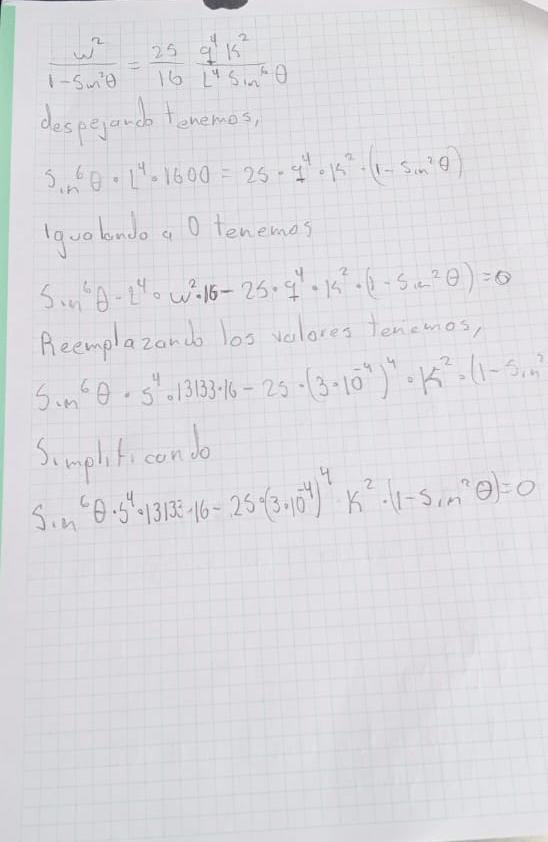 w² / 1-Sin²θ = 25/16 q⁴ K² / L⁴ Sin⁶ θ
despejando tenemos,
Sin⁶ θ · L⁴ · 1600 = 25 · q⁴ · K² · (1 - Sin² θ)
Igualando a 0 tenemos
Sin⁶ θ - L⁴ · w² · 16 - 25 · q⁴ · K² · (1 - Sin² θ) = 0
Reemplazando los valores tenemos,
Sin⁶ θ · 5⁴ · 13133 · 16 - 25 · (3 · 10⁻⁴)⁴ · K² · (1 - Sin²
Simplificando
Sin⁶ θ · 5⁴ · 13133 · 16 - 25 · (3 · 10⁻⁴)⁴ · K² · (1 - Sin² θ) = 0